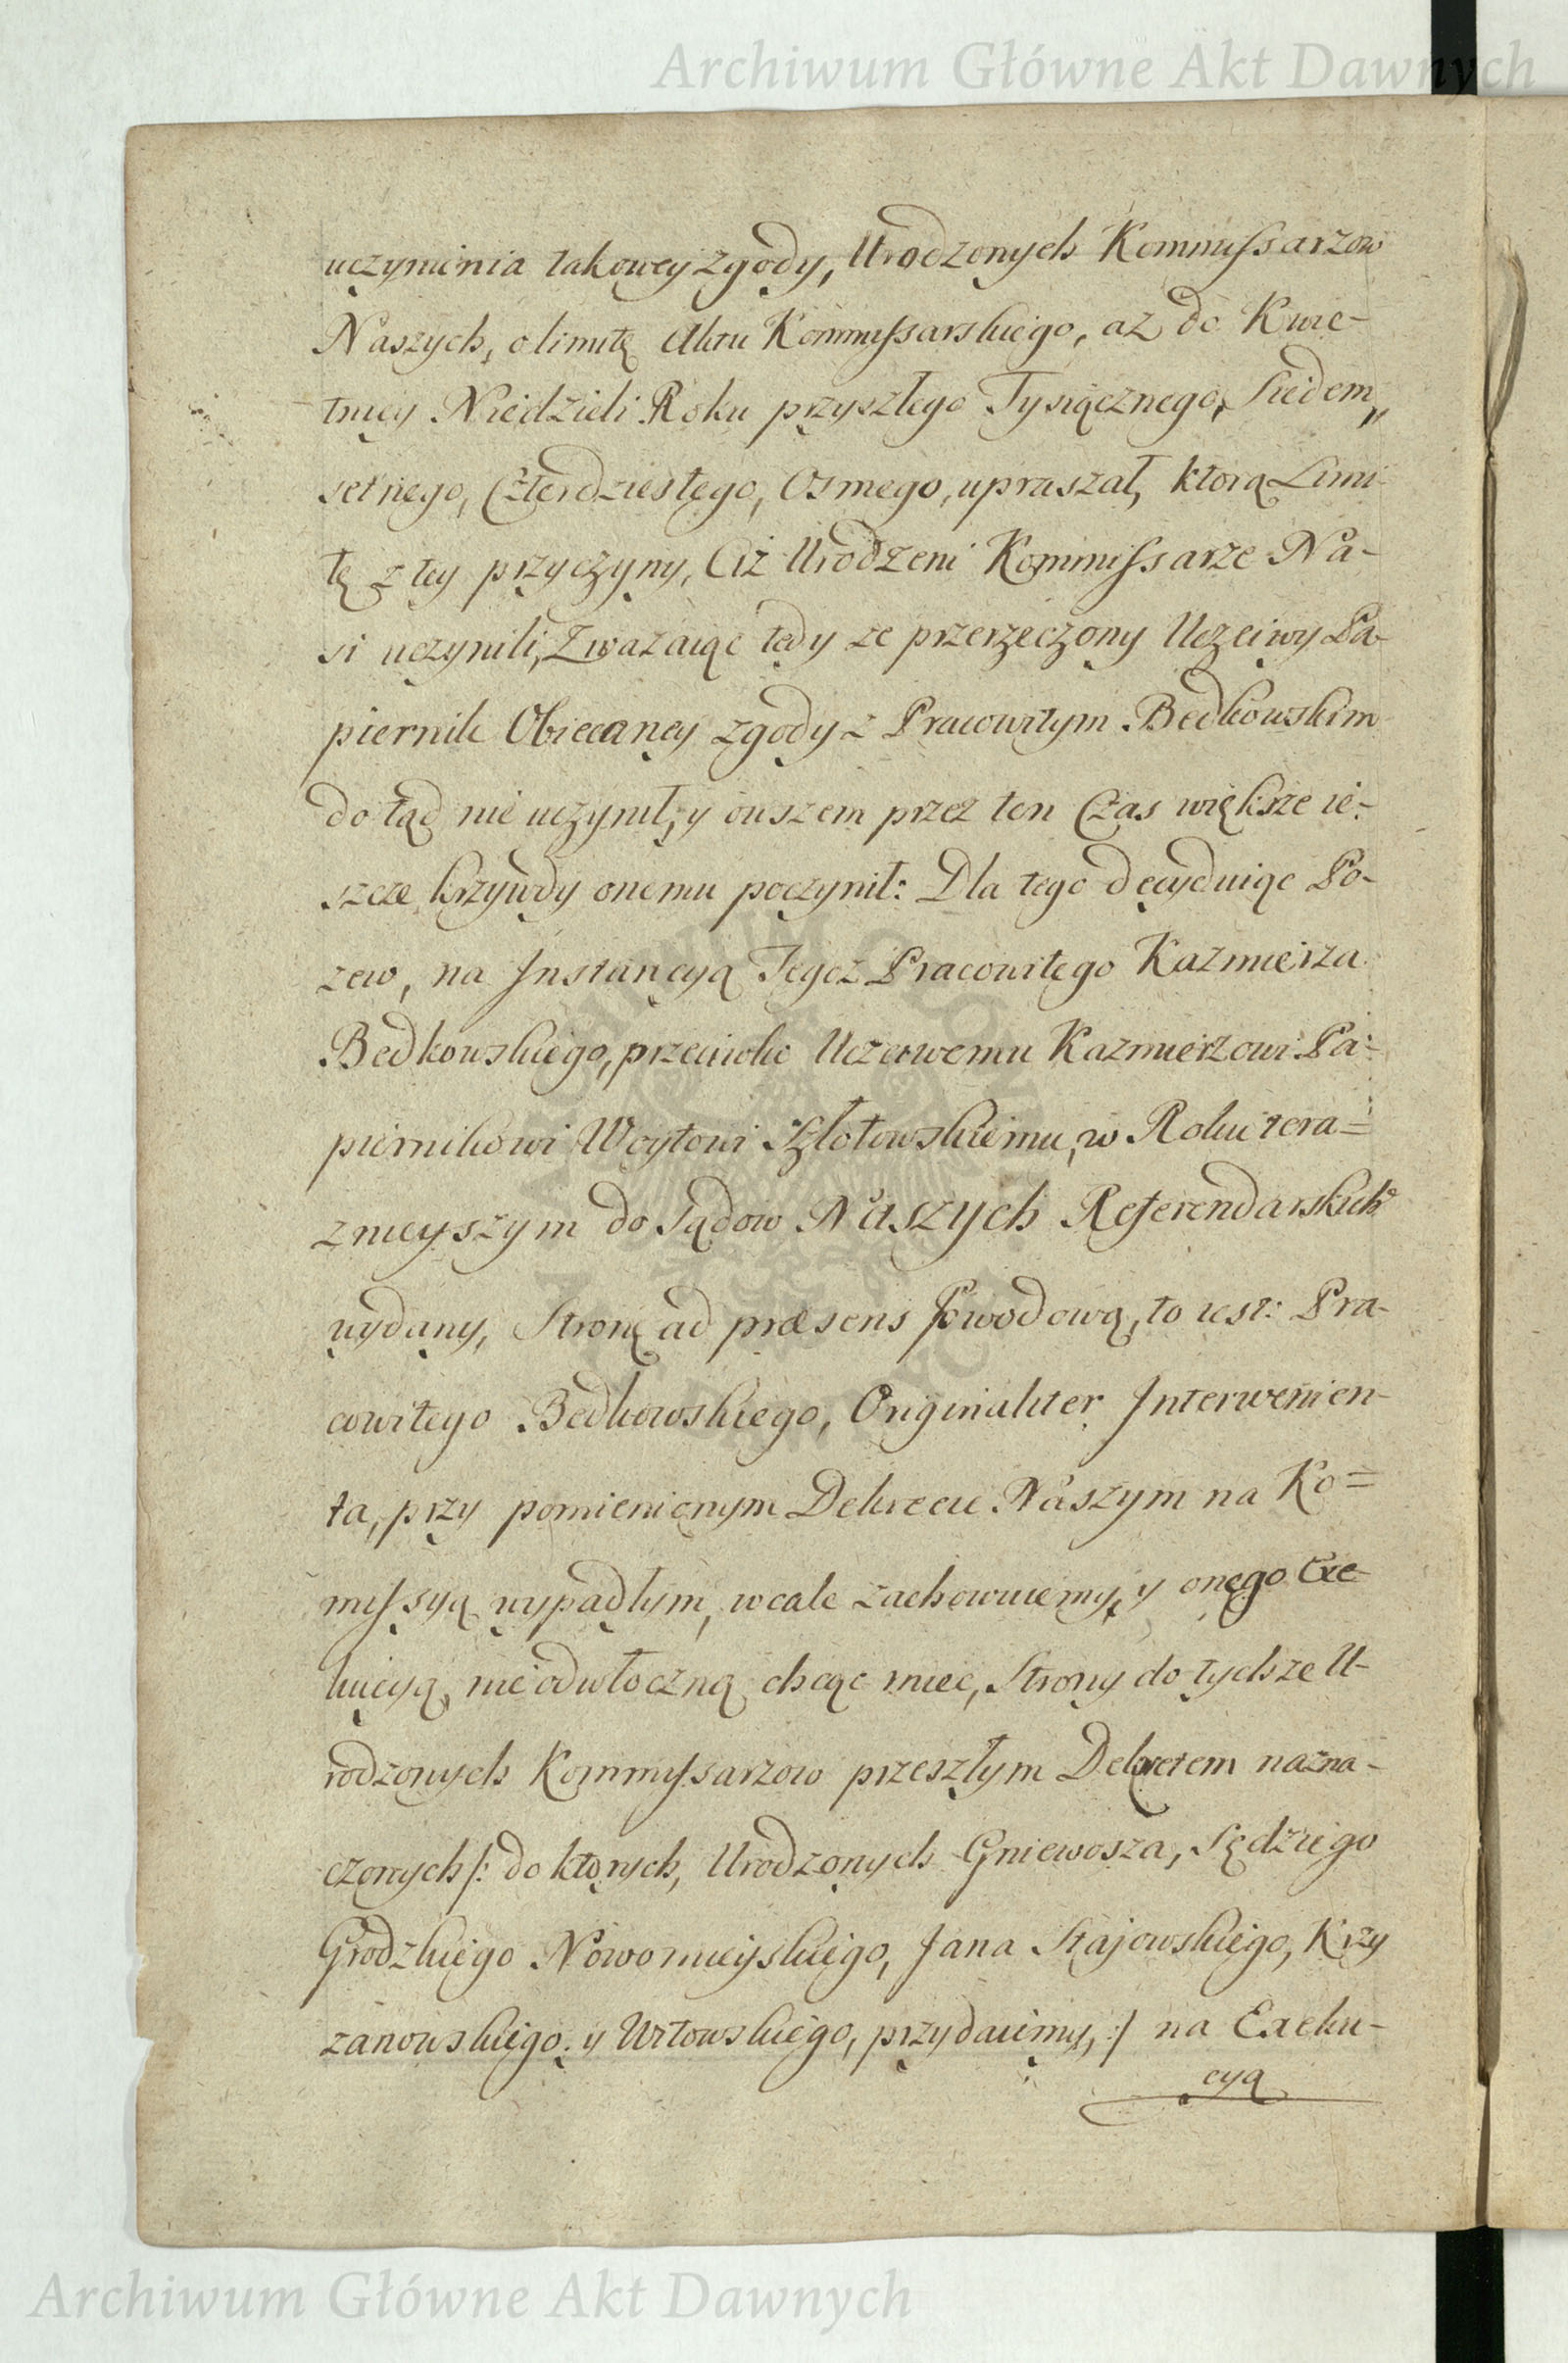 Archiwum Główne Akt Dawnych
uczynienia takowey zgody, Urodzonych Kommissarzow
Naszych, o limitę Aktu Kommissarskiego, aż do Kwie-
tney Niedzieli Roku przyszłego Tysiącznego, Siedem„
setnego, Czterdziestego, Osmego, upraszał, ktorą Limi-
tę z tey przyczyny, Ciż Urodzeni Kommissarze Na-
si uczynili, Zwazaiąc tedy ze przerzeczony Uczciwy Pa-
piernik Obiecaney zgody z Pracowitym Bedkowskim
do tąd nie uczynił, y owszem przez ten Czas większe ie-
szcze krzywdy onemu poczynił: Dla tego decyduiąc Po-
zew, na Instancyą Tegoż Pracowitego Kazmierza
Bedkowskiego, przeciwko Uczciwemu Kazmierzowi Pa-
piernikowi Woytowi Złotowskiemu, w Roku tera=
znieyszym do Sądow Naszych Referendarskich
wydany, Stronę ad præsens Powodową, to iest: Pra-
cowitego Bedkowskiego, Originaliter Interwenien-
ta, przy pomienionym Dekrecie Naszym na Ko=
missyą wypadłym, wcale zachowuiemy, y onego Exe-
kucyą nieodwłoczną chcąc miec, Strony do tychże U-
rodzonych Kommissarzow przeszłym Dekretem nazna-
czonych /: do ktorych, Urodzonych Gniewosza, Sędziego
Grodzkiego Nowomieyskiego, Jana Stajowskiego, Krzy
zanowskiego y Witowskiego, przydaiemy, :/ na Exeku-
cyą
Archiwum Główne Akt Dawnych